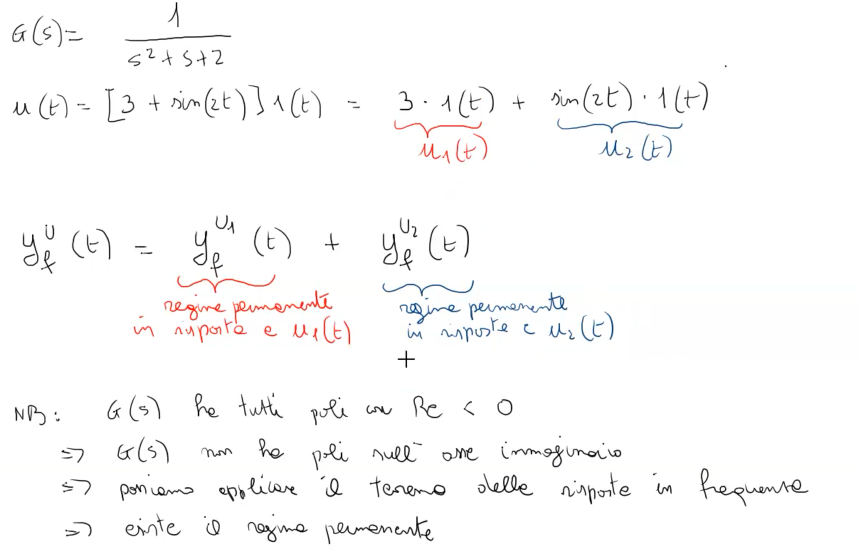 G(s) = 1 / (s² + s + 2)
u(t) = [3 + sin(2t)] 1(t) = 3 · 1(t) + sin(2t) · 1(t)
u₁(t) u₂(t)
y_f^U (t) = y_f^{U₁} (t) + y_f^{U₂} (t)
regime permanente regime permanente
in risposta a u₁(t) in risposta a u₂(t)
NB: G(s) ha tutti poli con Re < 0
=> G(s) non ha poli sull' asse immaginario
=> possiamo applicare il teorema della risposta in frequenza
=> esiste il regime permanente